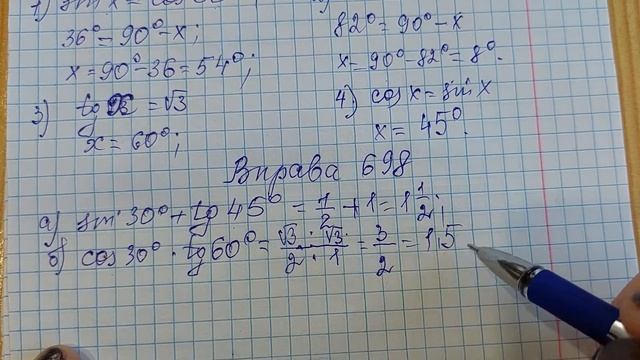 1) sin x = cos
36° = 90° - x;
x = 90° - 36 = 54°;
82° = 90° - x
x = 90° - 82° = 8°.
3) tg x = √3
x = 60°;
4) cos x = sin x
x = 45°.
Вправа 698
а) sin 30° + tg 45° = 1/2 + 1 = 1 1/2;
б) cos 30° · tg 60° = √3 · √3 / 2 · 1 = 3/2 = 1,5